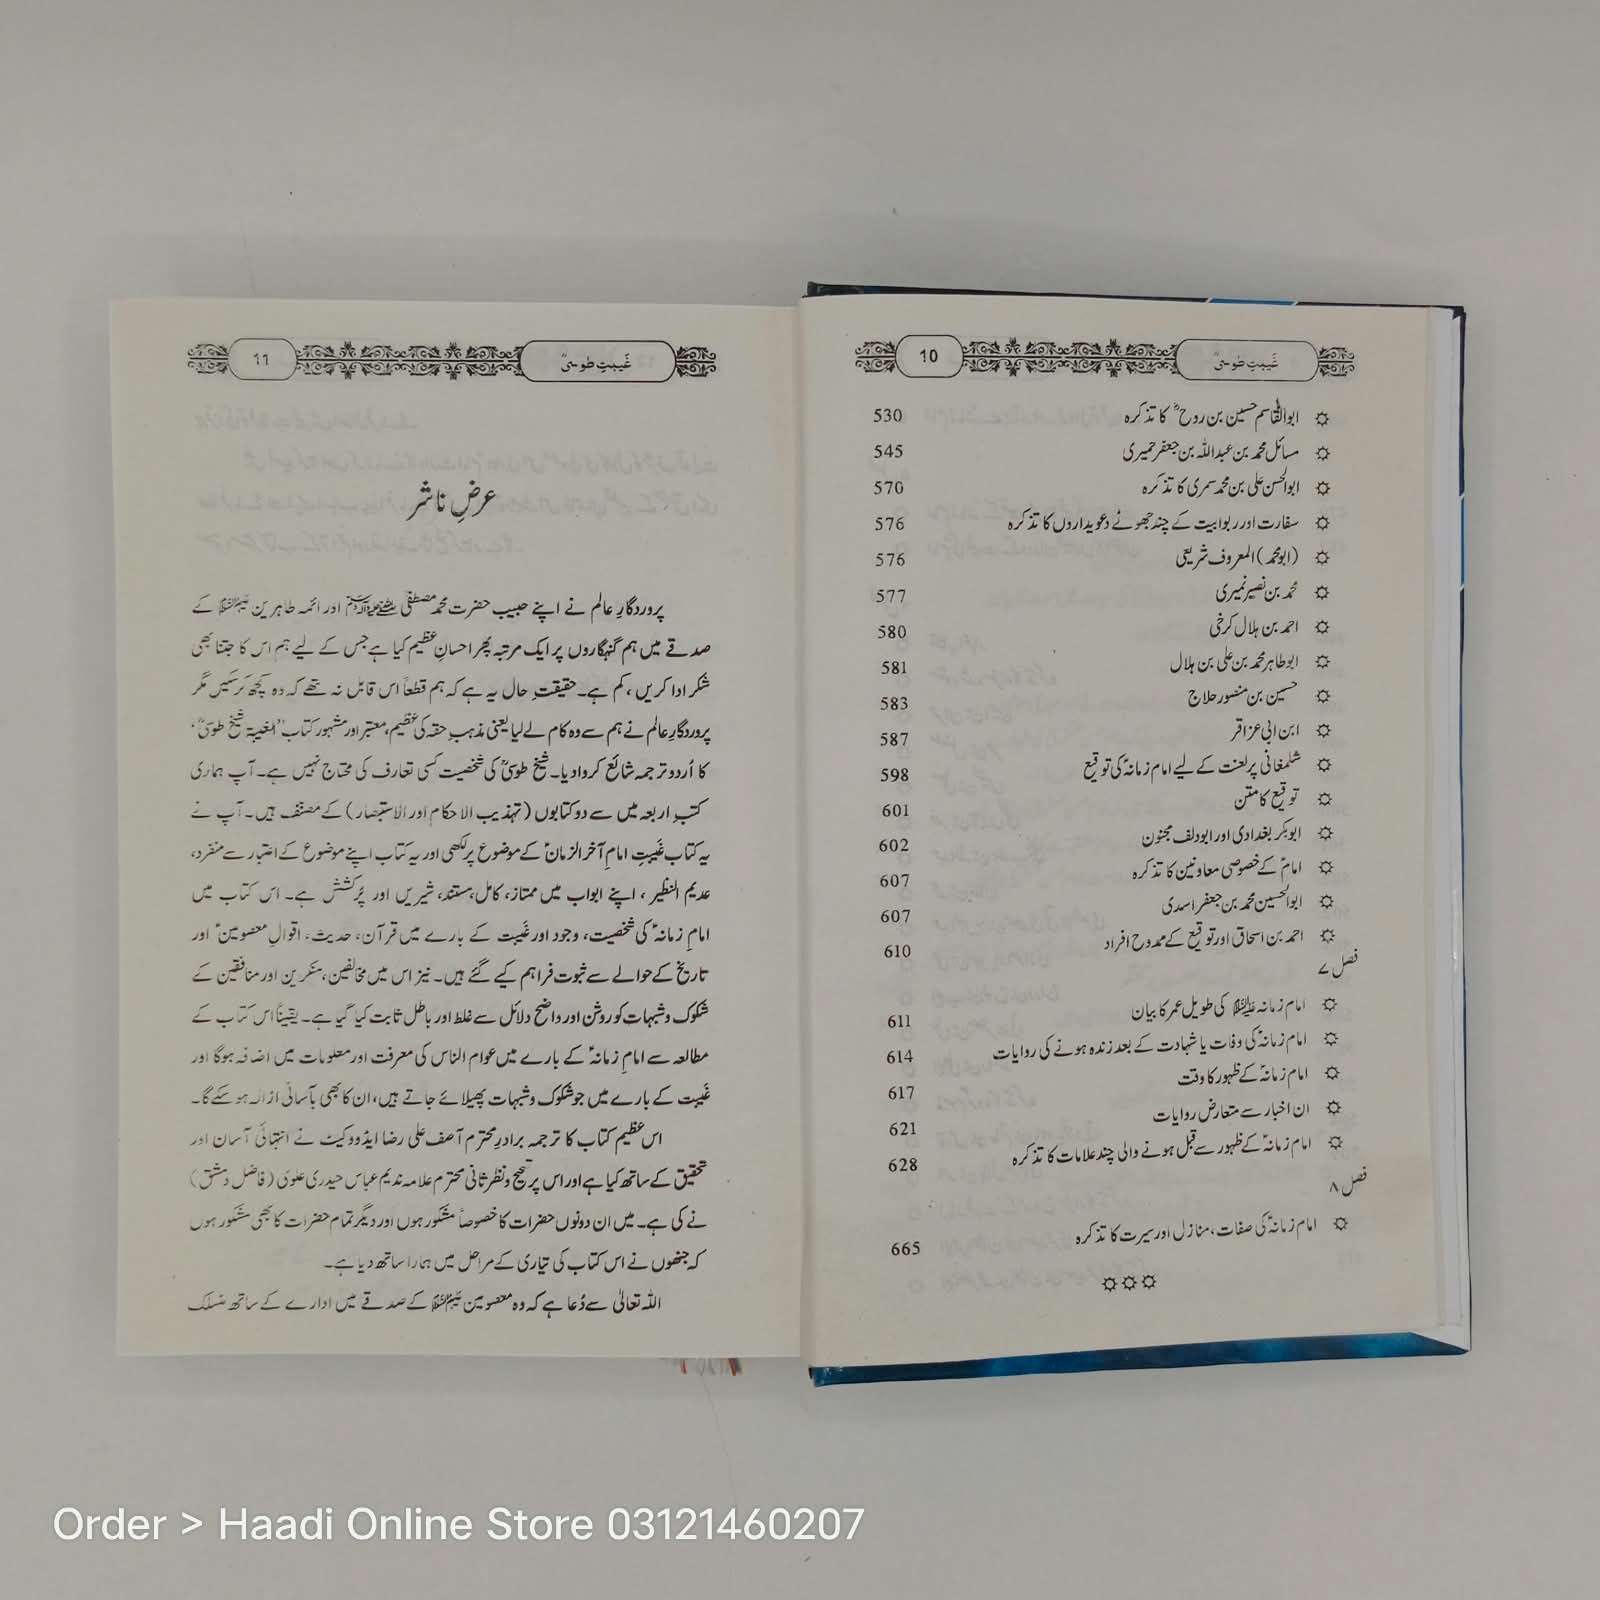 10 غَیبتِ طوسیؒ
ابوالقاسم حسین بن روحؓ کا تذکرہ 530
مسائل محمد بن عبداللہ بن جعفر حمیری 545
ابوالحسن علی بن محمد سمری کا تذکرہ 570
سفارت اور ربوابیت کے چند جھوٹے دعویداروں کا تذکرہ 576
(ابو محمد) المعروف شریعی 576
محمد بن نصیر نمیری 577
احمد بن ہلال کرخی 580
ابو طاہر محمد بن علی بن بلال 581
حسین بن منصور حلاج 583
ابن ابی عزاقر 587
شلمغانی پر لعنت کے لیے امام زمانہؑ کی توقیع 598
توقیع کا متن 601
ابوبکر بغدادی اور ابودلف مجنون 602
امامؑ کے خصوصی معاونین کا تذکرہ 607
ابوالحسین محمد بن جعفر اسدی 607
احمد بن اسحاق اور توقیع کے ممدوح افراد 610
فصل ۷
امام زمانہ علیہ السلام کی طویل عمر کا بیان 611
امام زمانہؑ کی وفات یا شہادت کے بعد زندہ ہونے کی روایات 614
امام زمانہؑ کے ظہور کا وقت 617
ان اخبار سے متعارض روایات 621
امام زمانہؑ کے ظہور سے قبل ہونے والی چند علامات کا تذکرہ 628
فصل ۸
امام زمانہؑ کی صفات، منازل اور سیرت کا تذکرہ 665
11 غَیبتِ طوسیؒ
عرضِ ناشر
پروردگارِ عالم نے اپنے حبیب حضرت محمد مصطفیٰ صلی اللہ علیہ وآلہ وسلم اور ائمہ طاہرین علیہم السلام کے
صدقے میں ہم گنہگاروں پر ایک مرتبہ پھر احسانِ عظیم کیا ہے جس کے لیے ہم اس کا جتنا بھی
شکر ادا کریں، کم ہے۔ حقیقتِ حال یہ ہے کہ ہم قطعاً اس قابل نہ تھے کہ وہ کچھ کر سکیں مگر
پروردگارِ عالم نے ہم سے وہ کام لے لیا یعنی مذہبِ حقہ کی عظیم، معتبر اور مشہور کتاب ”الغیبۃ شیخ طوسیؒ“
کا اُردو ترجمہ شائع کروا دیا۔ شیخ طوسیؒ کی شخصیت کسی تعارف کی محتاج نہیں ہے۔ آپ ہماری
کتبِ اربعہ میں سے دو کتابوں (تہذیب الاحکام اور الاستبصار) کے مصنف ہیں۔ آپ نے
یہ کتاب غَیبتِ امام آخر الزمانؑ کے موضوع پر لکھی اور یہ کتاب اپنے موضوع کے اعتبار سے منفرد،
عدیم النظیر، اپنے ابواب میں ممتاز، کامل، مستند، شیریں اور پُرکشش ہے۔ اس کتاب میں
امامِ زمانہؑ کی شخصیت، وجود اور غَیبت کے بارے میں قرآن، حدیث، اقوالِ معصومینؑ اور
تاریخ کے حوالے سے ثبوت فراہم کیے گئے ہیں۔ نیز اس میں مخالفین، منکرین اور منافقین کے
شکوک و شبہات کو روشن اور واضح دلائل سے غلط اور باطل ثابت کیا گیا ہے۔ یقیناً اس کتاب کے
مطالعہ سے امامِ زمانہؑ کے بارے میں عوام الناس کی معرفت اور معلومات میں اضافہ ہوگا اور
غَیبت کے بارے میں جو شکوک و شبہات پھیلائے جاتے ہیں، ان کا بھی بآسانی ازالہ ہو سکے گا۔
اس عظیم کتاب کا ترجمہ برادرِ محترم آصف علی رضا ایڈووکیٹ نے انتہائی آسان اور
تحقیق کے ساتھ کیا ہے اور اس پر تصحیح و نظرِ ثانی محترم علامہ ندیم عباس حیدری علوی (فاضل دمشق)
نے کی ہے۔ میں ان دونوں حضرات کا خصوصاً مشکور ہوں اور دیگر تمام حضرات کا بھی مشکور ہوں
کہ جنھوں نے اس کتاب کی تیاری کے مراحل میں ہمارا ساتھ دیا ہے۔
اللہ تعالیٰ سے دُعا ہے کہ وہ معصومین علیہم السلام کے صدقے میں ادارے کے ساتھ منسلک
Order > Haadi Online Store 03121460207